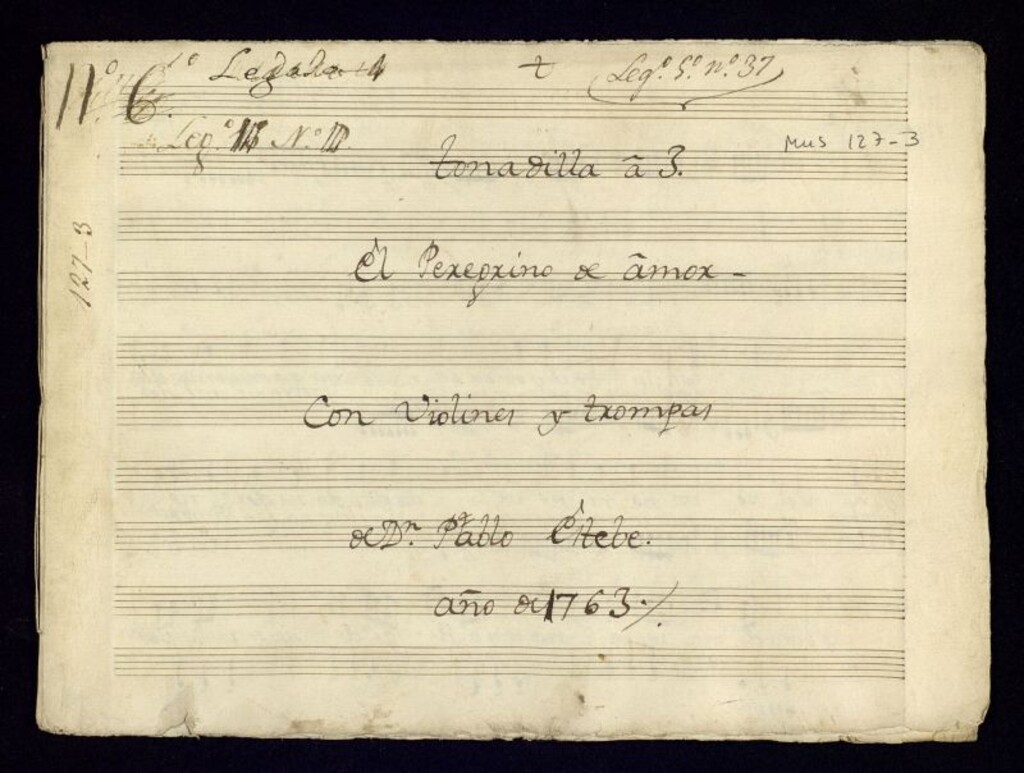 N.º 6. 1º Legado 4 t Legº. 5º. nº. 37
Legº. N.º
Mus 127-3
tonadilla â 3.
127-3
El Peregrino de âmor -
Con Violines y trompas
de Dn. Pablo Esteve.
año de 1763.